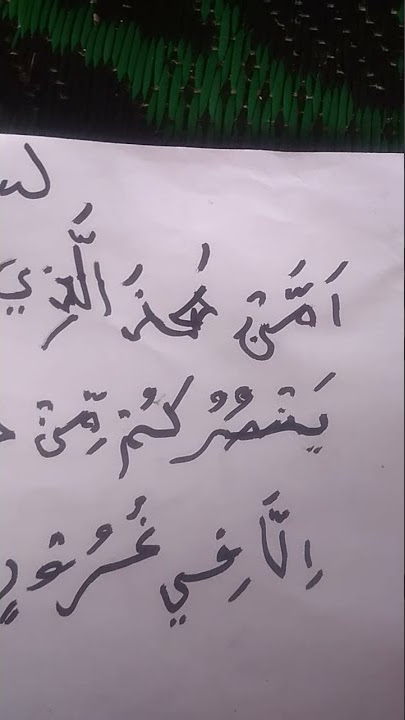 اَمَّنْ هٰذَ الَّذِي
يَنْصُرُ كُمْ مِّنْ
اِلَّا فِي غُرُوْرٍ